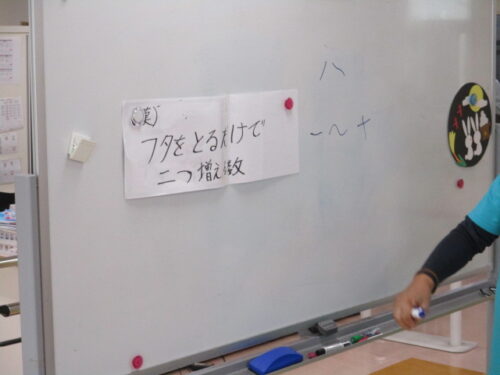 (漢)
フタをとるだけで
二つ増える数
八
一~十